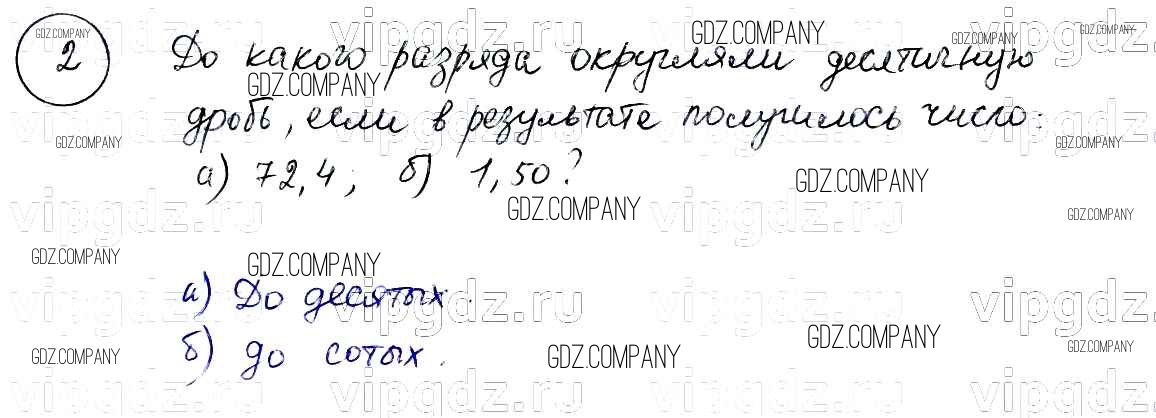 2 До какого разряда округляли десятичную
дробь, если в результате получилось число:
а) 72,4; б) 1,50?
а) До десятых.
б) до сотых.
GDZ.COMPANY
vipgdz.ru